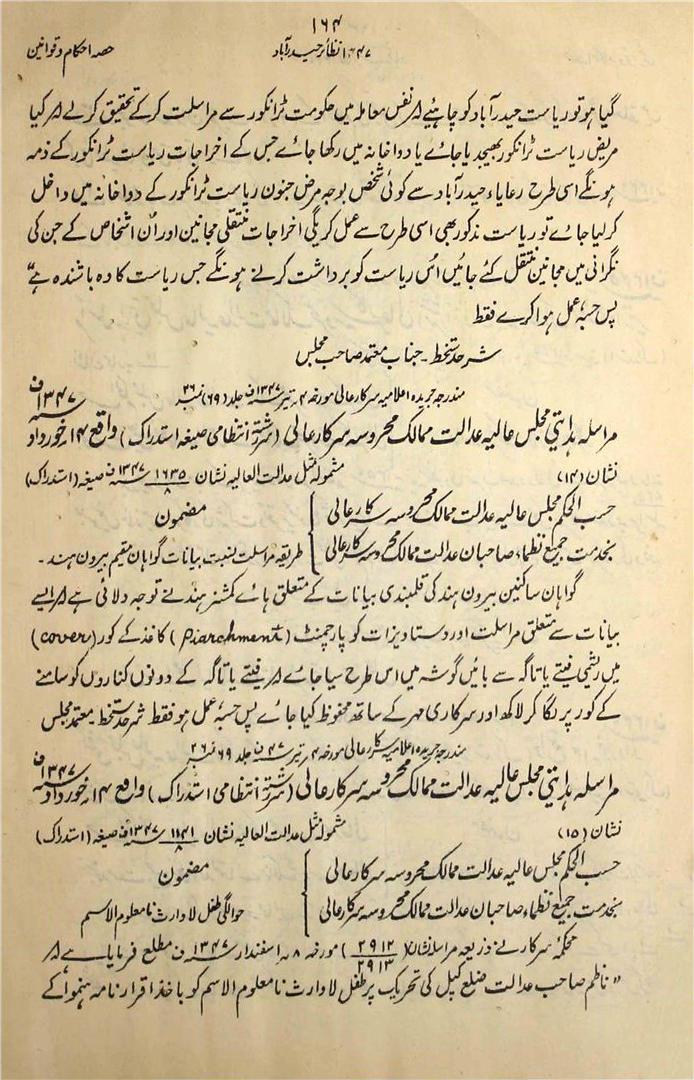 ۱۶۴
۱۳۴۷ نظائر حیدرآباد
حصہ احکام و قوانین
گیا ہو تو ریاست حیدرآباد کو چاہئیے کہ نفس معاملہ میں حکومت ٹرانکور سے مراسلت کرکے تحقیق کرلے کہ کیا
مریض ریاست ٹرانکور بھیجدیا جاے یا دواخانہ میں رکھا جاے جس کے اخراجات ریاست ٹرانکور کے ذمہ
ہونگے اسی طرح رعایاء حیدرآباد سے کوئی شخص بوجہ مرض جنون ریاست ٹرانکور کے دواخانہ میں داخل
کرلیا جاے تو ریاست مذکور بھی اسی طرح سے عمل کریگی اخراجات منتقلی مجانین اور اُن اشخاص کے جن کی
نگرانی میں مجانین منتقل کئے جائیں اُس ریاست کو برداشت کرنے ہونگے جس ریاست کا وہ باشندہ ہے"
پس حسبہ عمل ہوا کرے فقط
شرحدستخط ۔ جناب معتمد صاحب مجلس
مندرجہ جریدہ اعلامیہ سرکار عالی مورخہ ۴؍ تیر ۱۳۴۷ ف جلد (۶۹) نمبر ۲۶
مراسلہ ہدایتی مجلس عالیہ عدالت ممالک محروسہ سرکار عالی (سررشتہ انتظامی صیغہ استدراک) واقع ۱۴؍ خورداد ۱۳۴۷ ف
نشان (۱۴) مشمولہ مثل عدالت العالیہ نشان ۱۶۳۵/۸ ۱۳۴۷ ف صیغہ (استدراک)
حسب الحکم مجلس عالیہ عدالت ممالک محروسہ سرکار عالی
مضمون
بخدمت جمیع نظماء صاحبان عدالت ممالک محروسہ سرکار عالی
طریقہ مراسلت نسبت بیانات گواہان مقیم بیرون ہند ۔
گواہان ساکنین بیرون ہند کی قلمبندی بیانات کے متعلق ہائے کمشنر ہند نے توجہ دلائی ہے کہ ایسے
بیانات سے متعلق مراسلت اور دستاویزات کو پارچمنٹ (Piarchment) کاغذ کے کور (cover)
میں ریشمی فیتے یا تاگہ سے بائیں گوشہ میں اس طرح سیا جاے کہ فیتے یا تاگہ کے دونوں کناروں کو سامنے
کے کور پر لگا کر لاکھ اور سرکاری مہر کے ساتھ محفوظ کیا جاے پس حسبہ عمل ہو فقط شرحدستخط معتمد مجلس
مندرجہ جریدہ اعلامیہ سرکار عالی مورخہ ۴؍ تیر ۴۷ ف جلد ۶۹ نمبر ۲۶
مراسلہ ہدایتی مجلس عالیہ عدالت ممالک محروسہ سرکار عالی (سررشتہ انتظامی استدراک) واقع ۱۴؍ خورداد ۱۳۴۷ ف
نشان (۱۵) مشمولہ مثل عدالت العالیہ نشان ۱۱۴۱/۸ ۱۳۴۷ ف صیغہ (استدراک)
حسب الحکم مجلس عالیہ عدالت ممالک محروسہ سرکار عالی
مضمون
بخدمت جمیع نظماء صاحبان عدالت ممالک محروسہ سرکار عالی
حوالگی طفل لاوارث نامعلوم الاسم
محکمۂ سرکار نے ذریعہ مراسلہ نشان (۲۹۱۲/۲۹۱۳) مورخہ ۸؍ اسفندار ۱۳۴۷ ف مطلع فرمایا ہے کہ
"ناظم صاحب عدالت ضلع کپل کی تحریک پر طفل لاوارث نامعلوم الاسم کو باخذ اقرارنامہ ہنموا کے